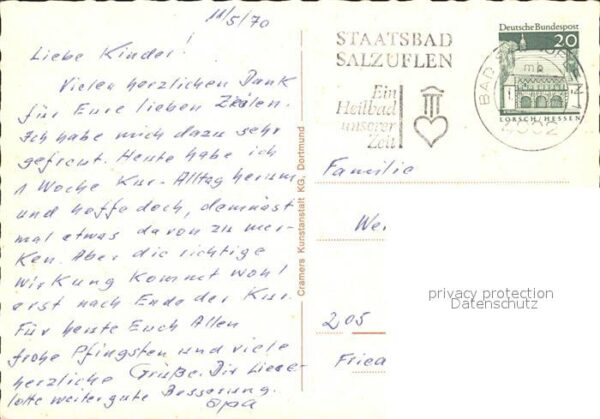 11/5/70
Liebe Kinder!
Vielen herzlichen Dank
für Eure lieben Zeilen.
Ich habe mich dazu sehr
gefreut. Heute habe ich
1 Woche Kur-Alltag herum
und hoffe doch, demnäcst
mal etwas davon zu mer-
ken. Aber die richtige
Wirkung kommt wohl
erst nach Ende der Kur.
Für heute Euch Allen
frohe Pfingsten und viele
herzliche Grüße. Dir Liese-
lotte weiter gute Besserung.
Opa
Cramers Kunstanstalt KG, Dortmund
STAATSBAD
SALZUFLEN
Ein
Heilbad
unserer
Zeit
Deutsche Bundespost
20
LORSCH/HESSEN
BAD SALZUFLEN 1
mb
4902
Familie
Wei
privacy protection
Datenschutz
205
Fried